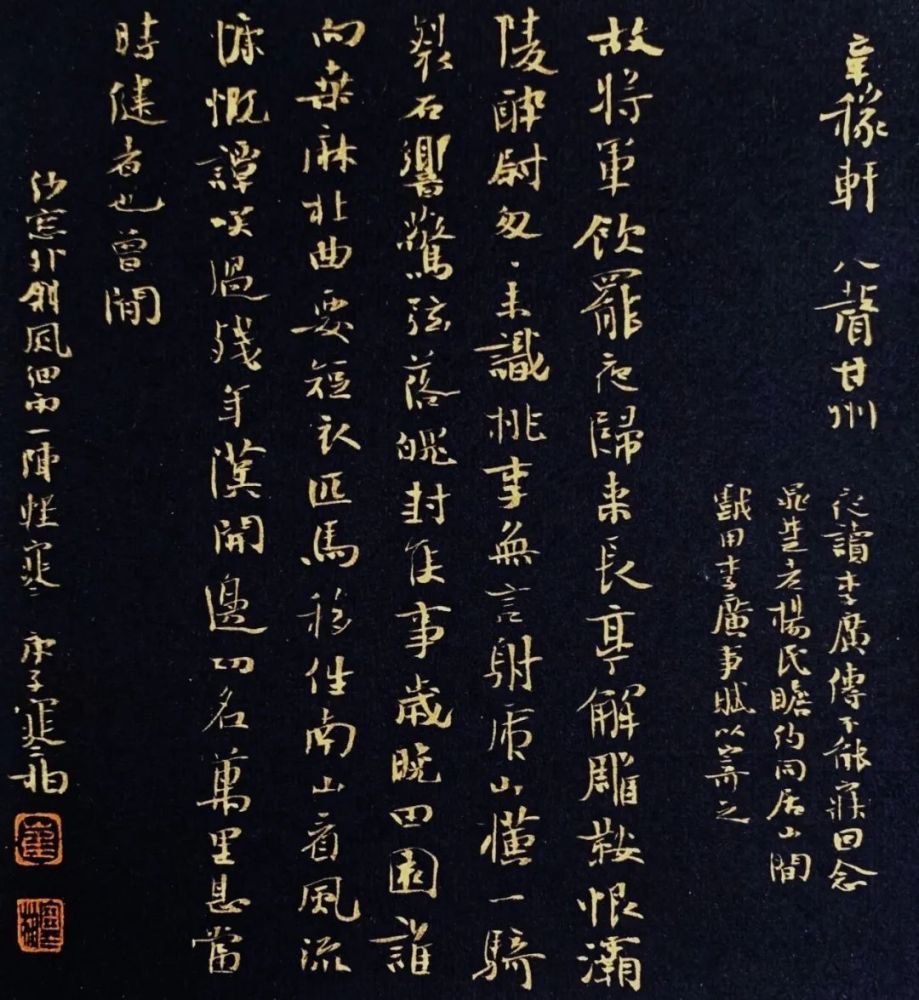 辛稼軒 八聲甘州
夜讀李廣傳不能寐因念
晁楚老楊民瞻約同居山間
戲用李廣事賦以寄之
故將軍飲罷夜歸來長亭解雕鞍恨灞
陵醉尉匆〻未識桃李無言射虎山橫一騎
裂石響驚弦落魄封侯事歲晚田園誰
向桑麻杜曲要短衣匹馬移住南山看風流
慷慨譚笑過殘年漢開邊功名萬里甚當
時健者也曾閒
紗窓外斜風細雨一陣輕寒 庚子